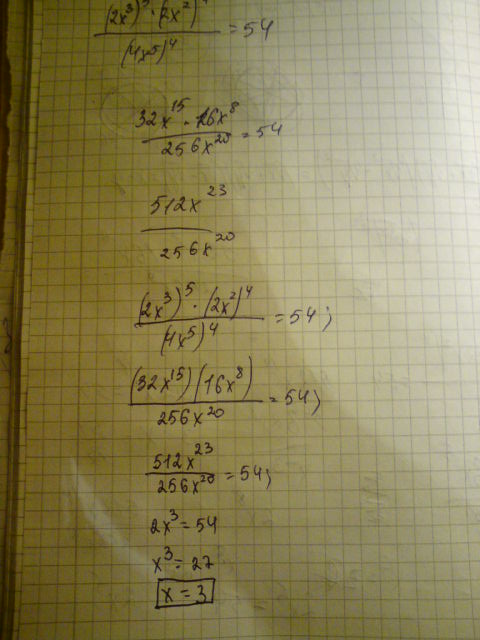 (2x³)⁵ · (2x²)⁴ / (4x⁵)⁴ = 54
32x¹⁵ · 16x⁸ / 256x²⁰ = 54
512x²³ / 256x²⁰
(2x³)⁵ · (2x²)⁴ / (4x⁵)⁴ = 54;
(32x¹⁵)(16x⁸) / 256x²⁰ = 54;
512x²³ / 256x²⁰ = 54;
2x³ = 54
x³ = 27
x = 3